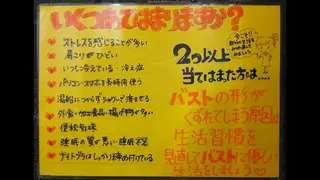 いくつあてはまりますか?
ストレスを感じることが多い
肩こりがひどい
いつも冷えている…冷え症
パソコン・スマホを長時間使う
湯船につからずシャワーで済ませる
外食・加工食品・揚げ物が多い
便秘気味
睡眠の質が悪い・睡眠不足
ナイトブラはしっかり締め付けている
2つ以上
当てはまった方は…
バストの形が
くずれてしまう原因に
生活習慣を
見直してバストに優しい
生活をしましょう